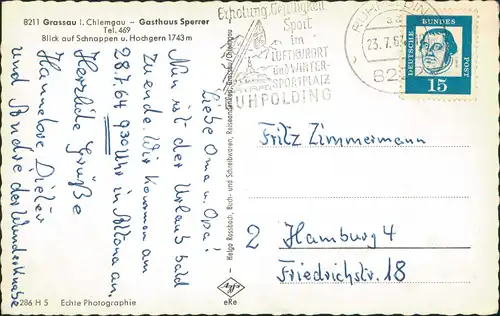 8211 Grassau i. Chiemgau - Gasthaus Sperrer
Tel. 469
Blick auf Schnappen u. Hochgern 1743 m
Liebe Oma u. Opa!
Nun ist der Urlaub bald
zu ende. Wir kommen am
28.7.64 930 Uhr in Altona an.
Herzliche Grüße
Hannelore Dieter
und Andrea der Wunderknabe
286 H 5 Echte Photographie
Helga Rossbach, Buch- und Schreibwaren, Reiseandenken, Grassau/Chiemgau
eRe
Erholung Geselligkeit
Sport
im
LUFTKURORT
und WINTER-
SPORTPLATZ
RUHPOLDING
23.7.6
DEUTSCHE BUNDESPOST
15
Fritz Zimmermann
2 Hamburg 4
Friedrichstr. 18